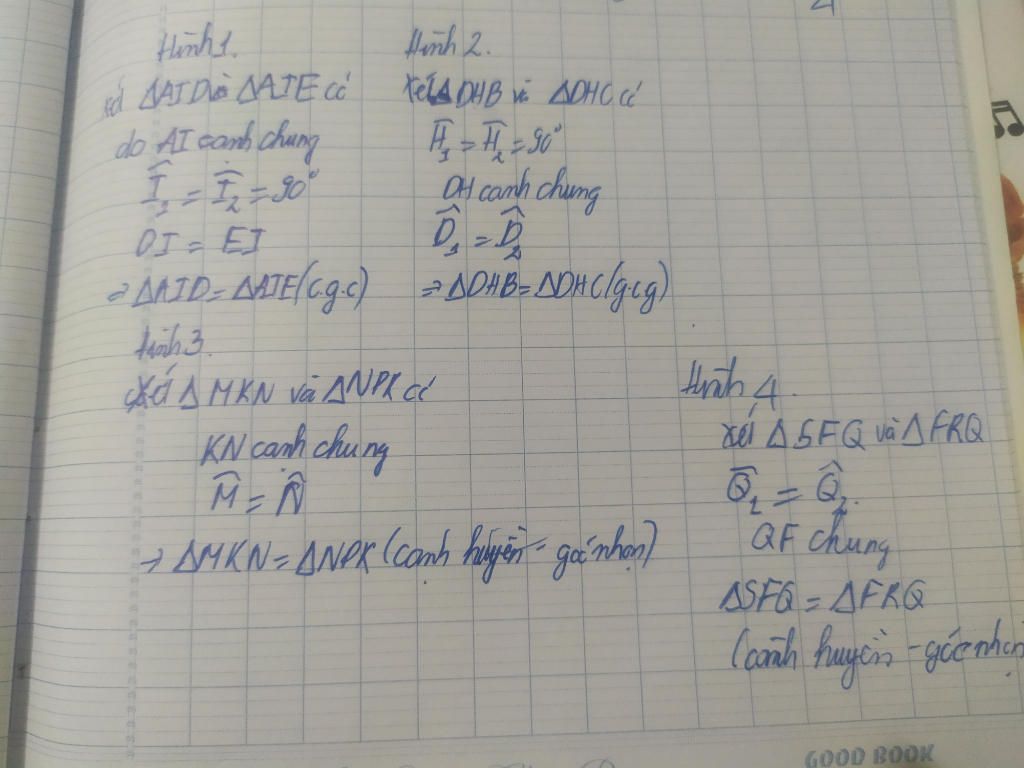 Hình 1.
xét ΔAID và ΔAIE có
do AI cạnh chung
Î₁ = Î₂ = 90°
DI = EI
⇒ ΔAID = ΔAIE (c.g.c)
Hình 2.
Xét ΔDHB và ΔDHC có
Ĥ₁ = Ĥ₂ = 90°
DH cạnh chung
D̂₁ = D̂₂
⇒ ΔDHB = ΔDHC (g.c.g)
Hình 3.
Xét ΔMKN và ΔNPK có
KN cạnh chung
M̂ = N̂
→ ΔMKN = ΔNPK (cạnh huyền - góc nhọn)
Hình 4.
Xét ΔSFQ và ΔFRQ
Q̂₁ = Q̂₂.
QF chung
ΔSFQ = ΔFRQ
(cạnh huyền - góc nhọn
GOOD BOOK